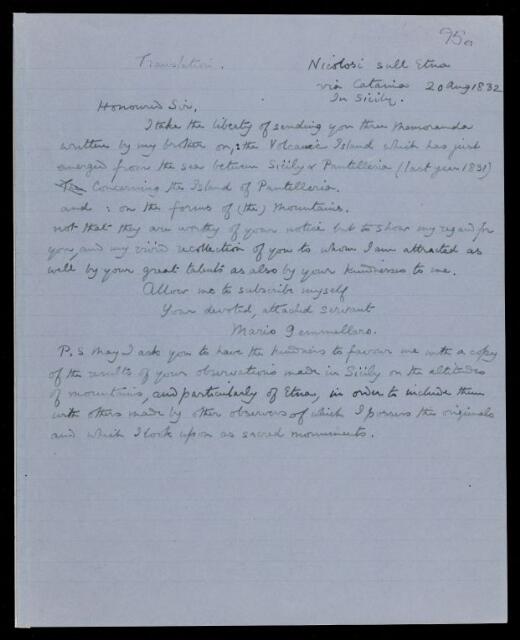 95a
Translation.
Nicolosi sull Etna
via Catania 20 Aug 1832
In Sicily.
Honoured Sir,
I take the liberty of sending you three Memoranda
written by my brother on; the Volcanic Island which has just
emerged from the sea between Sicily & Pantelleria (last year 1831)
Concerning the Island of Pantelleria.
and : on the forms of (the) Mountains.
not that they are worthy of your notice but to show my regard for
you, and my vivid recollection of you to whom I am attracted as
well by your great talents as also by your kindnesses to me.
Allow me to subscribe myself
Your devoted, attached servant
Mario Gemmellaro.
P.S May I ask you to have the kindness to favour me with a copy
of the results of your observations made in Sicily on the altitudes
of mountains, and particularly of Etna, in order to include them
with others made by other observers of which I possess the originals
and which I look upon as sacred monuments.